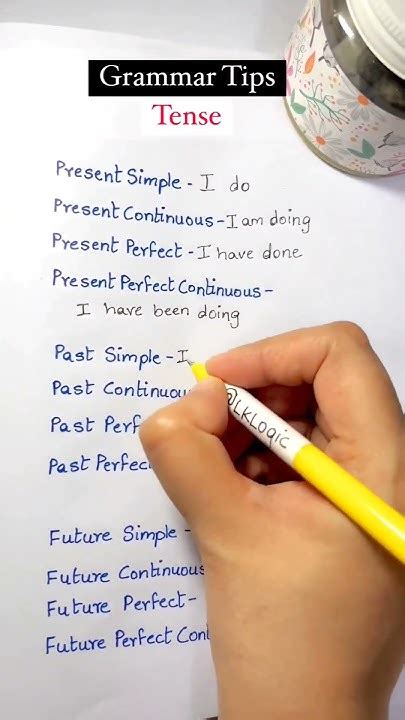 Grammar Tips
Tense
Present Simple - I do
Present Continuous - I am doing
Present Perfect - I have done
Present Perfect Continuous -
I have been doing
Past Simple - I
Past Continuou
@LKLogic
Past Perf
Past Perfec
Future Simple -
Future Continuous
Future Perfect -
Future Perfect Cont